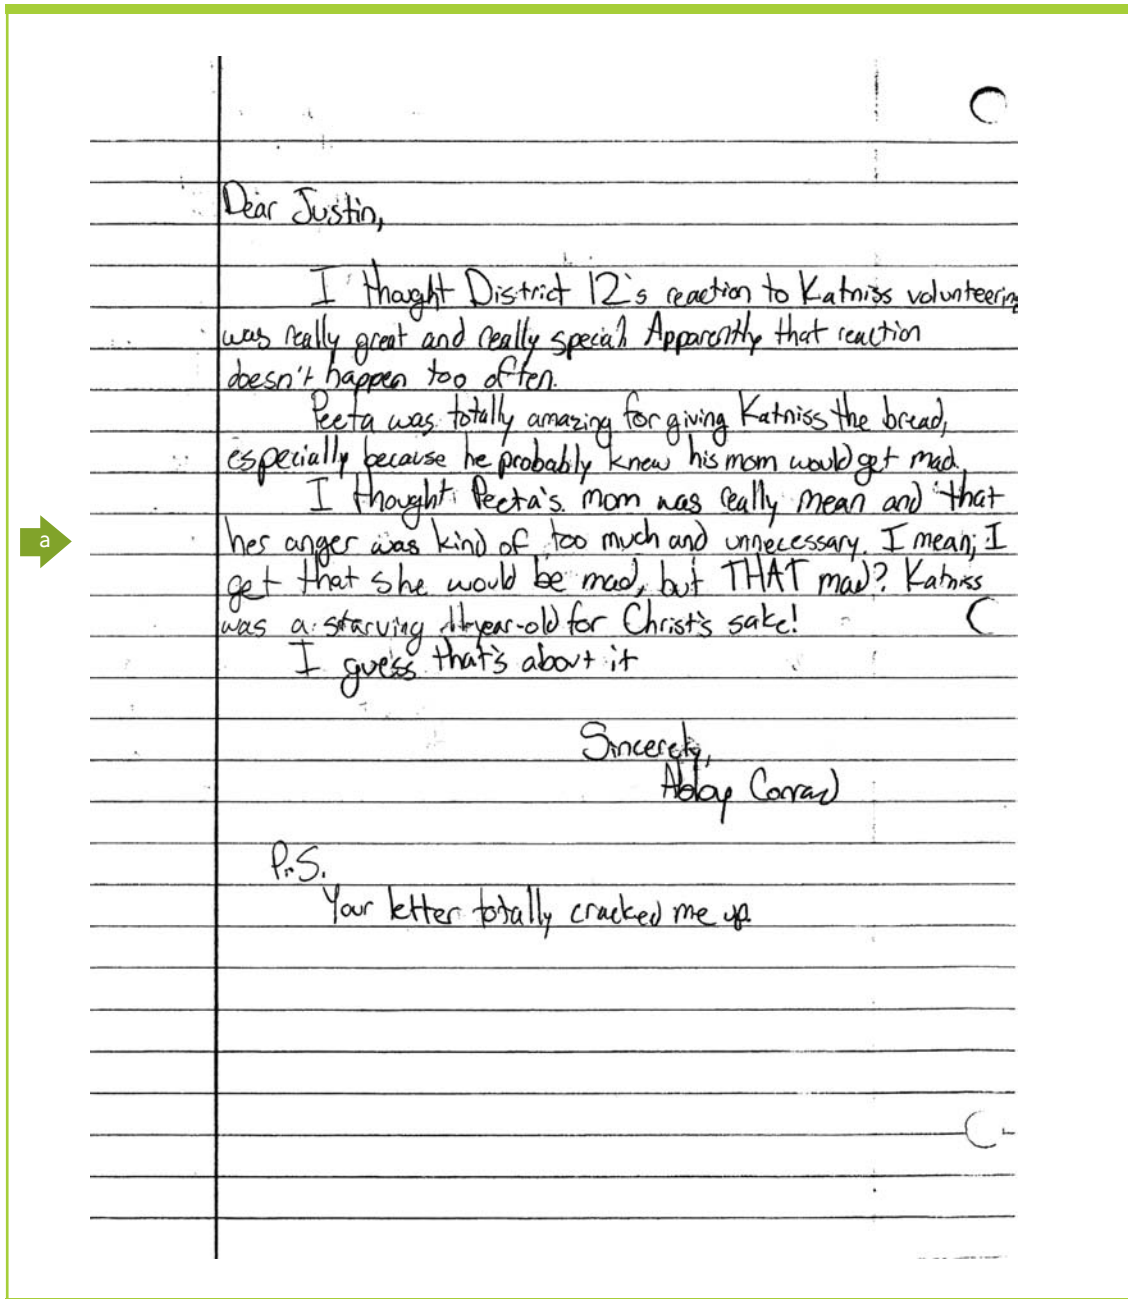 Dear Justin,
I thought District 12's reaction to Katniss volunteering
was really great and really special. Apparently that reaction
doesn't happen too often.
Peeta was totally amazing for giving Katniss the bread,
especially because he probably knew his mom would get mad.
I thought Peeta's mom was really mean and that
her anger was kind of too much and unnecessary. I mean, I
get that she would be mad, but THAT mad? Katniss
was a starving 11-year-old for Christ's sake!
I guess that's about it
Sincerely,
Abby Conrad
P.S.
Your letter totally cracked me up.
a